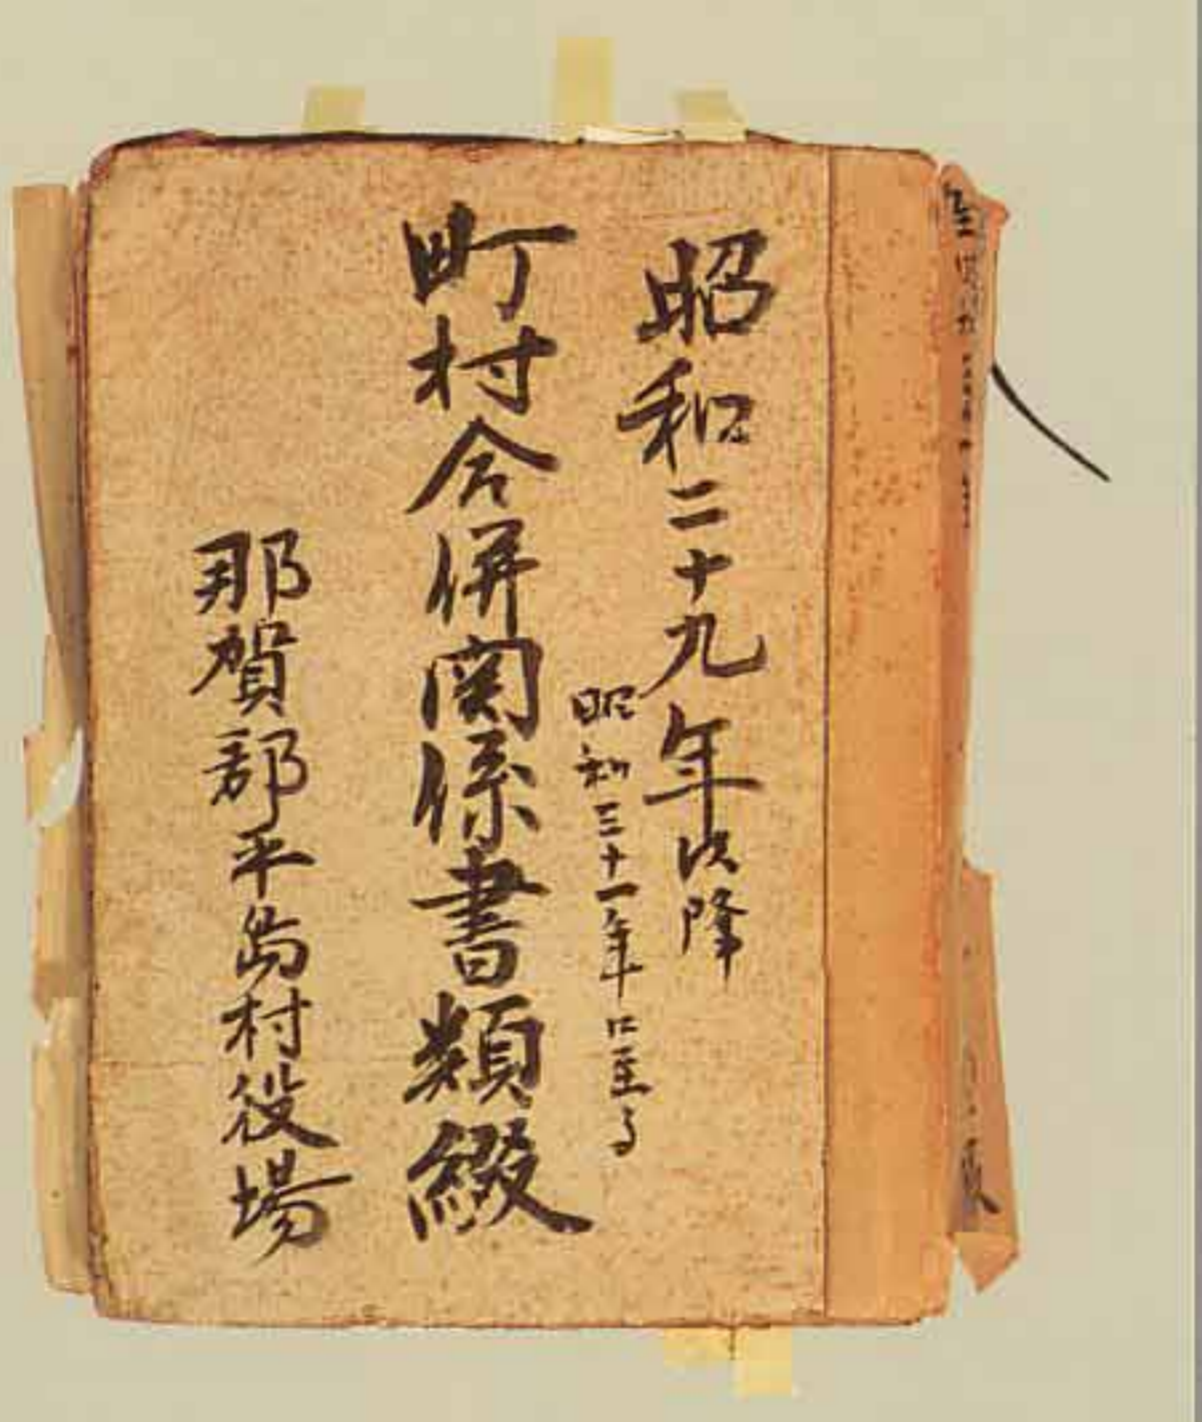 昭和二十九年以降
昭和三十一年に至る
町村合併関係書類綴
那賀郡平島村役場